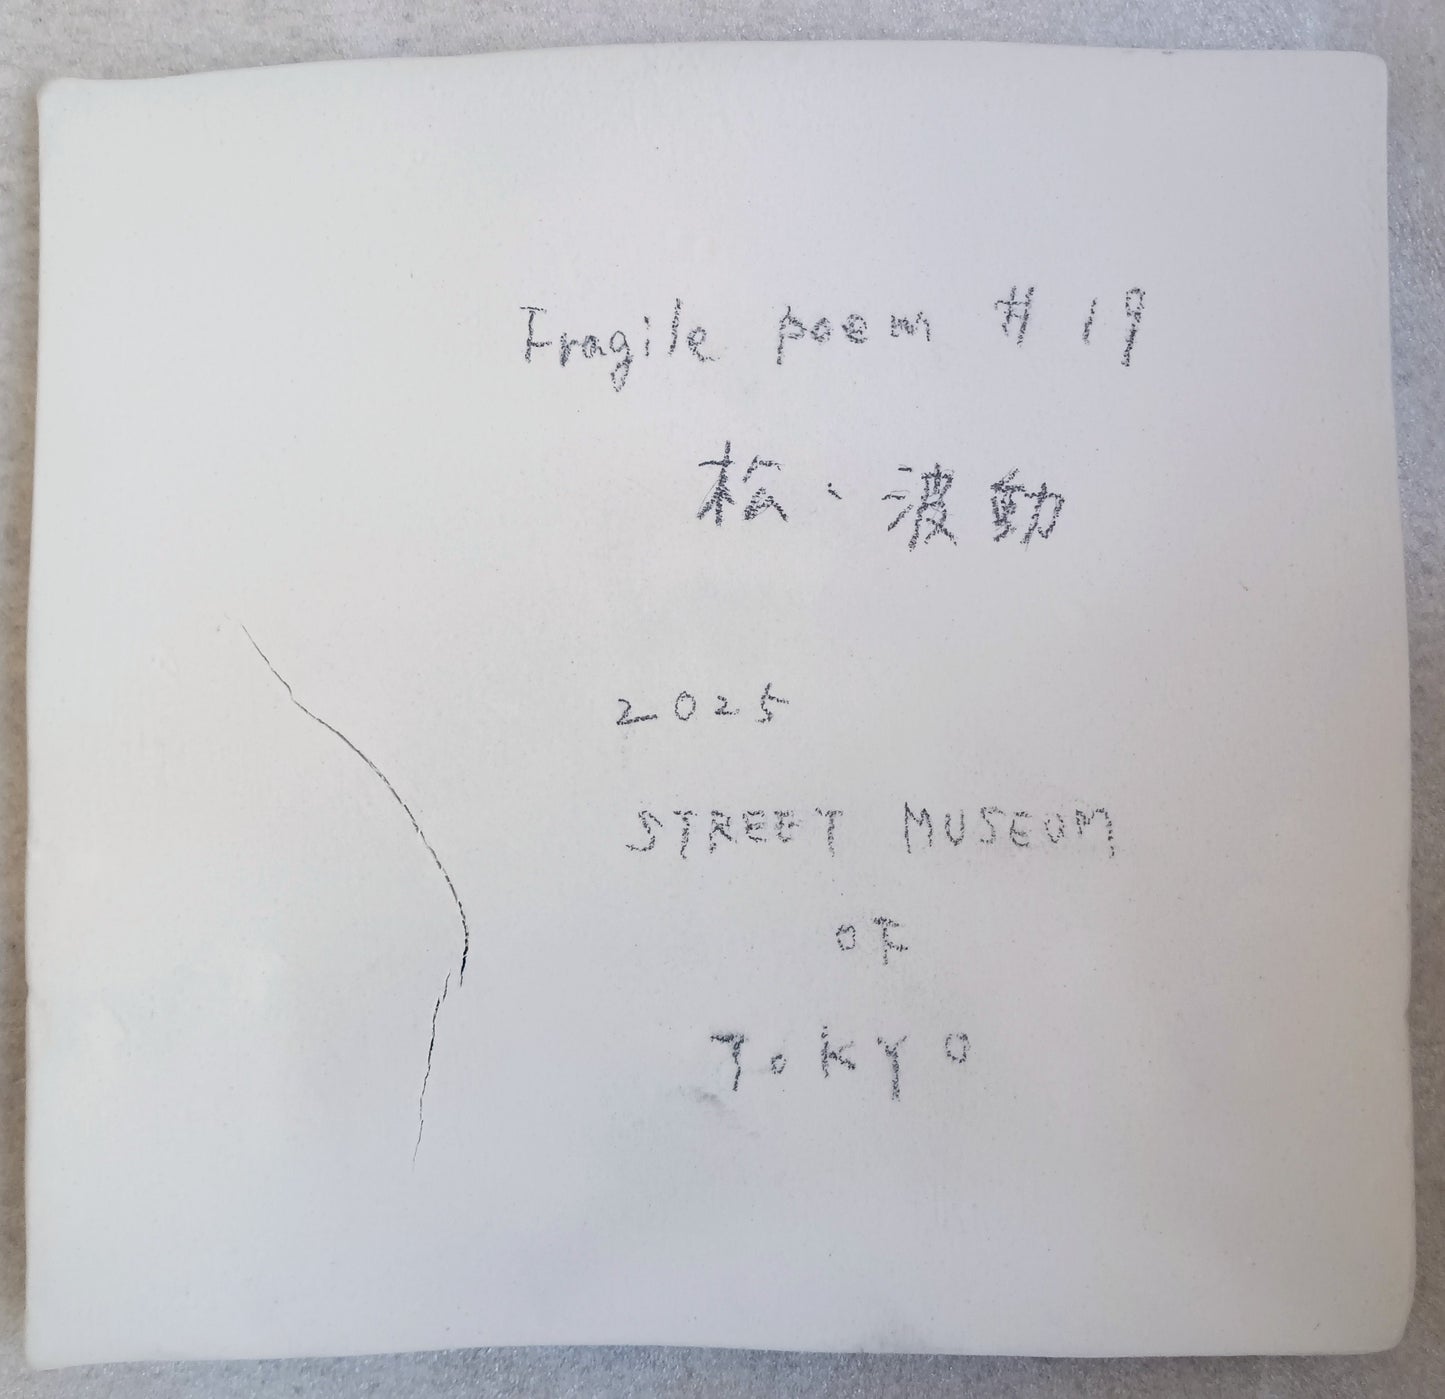 Fragile poem #19
松、波動
2025
STREET MUSEUM
OF
TOKYO